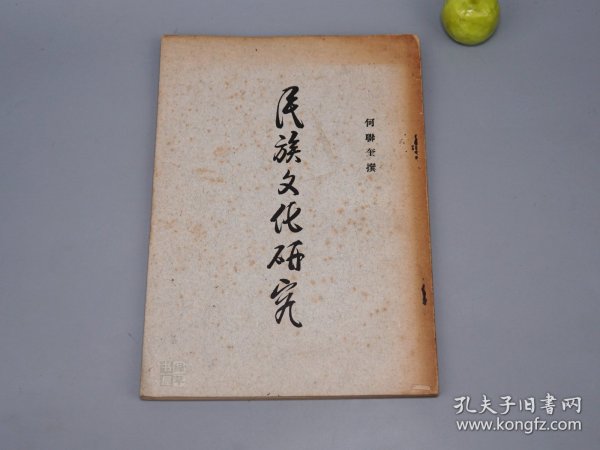 民族文化研究
何聯奎撰
孔夫子旧书网
www.kongfz.com